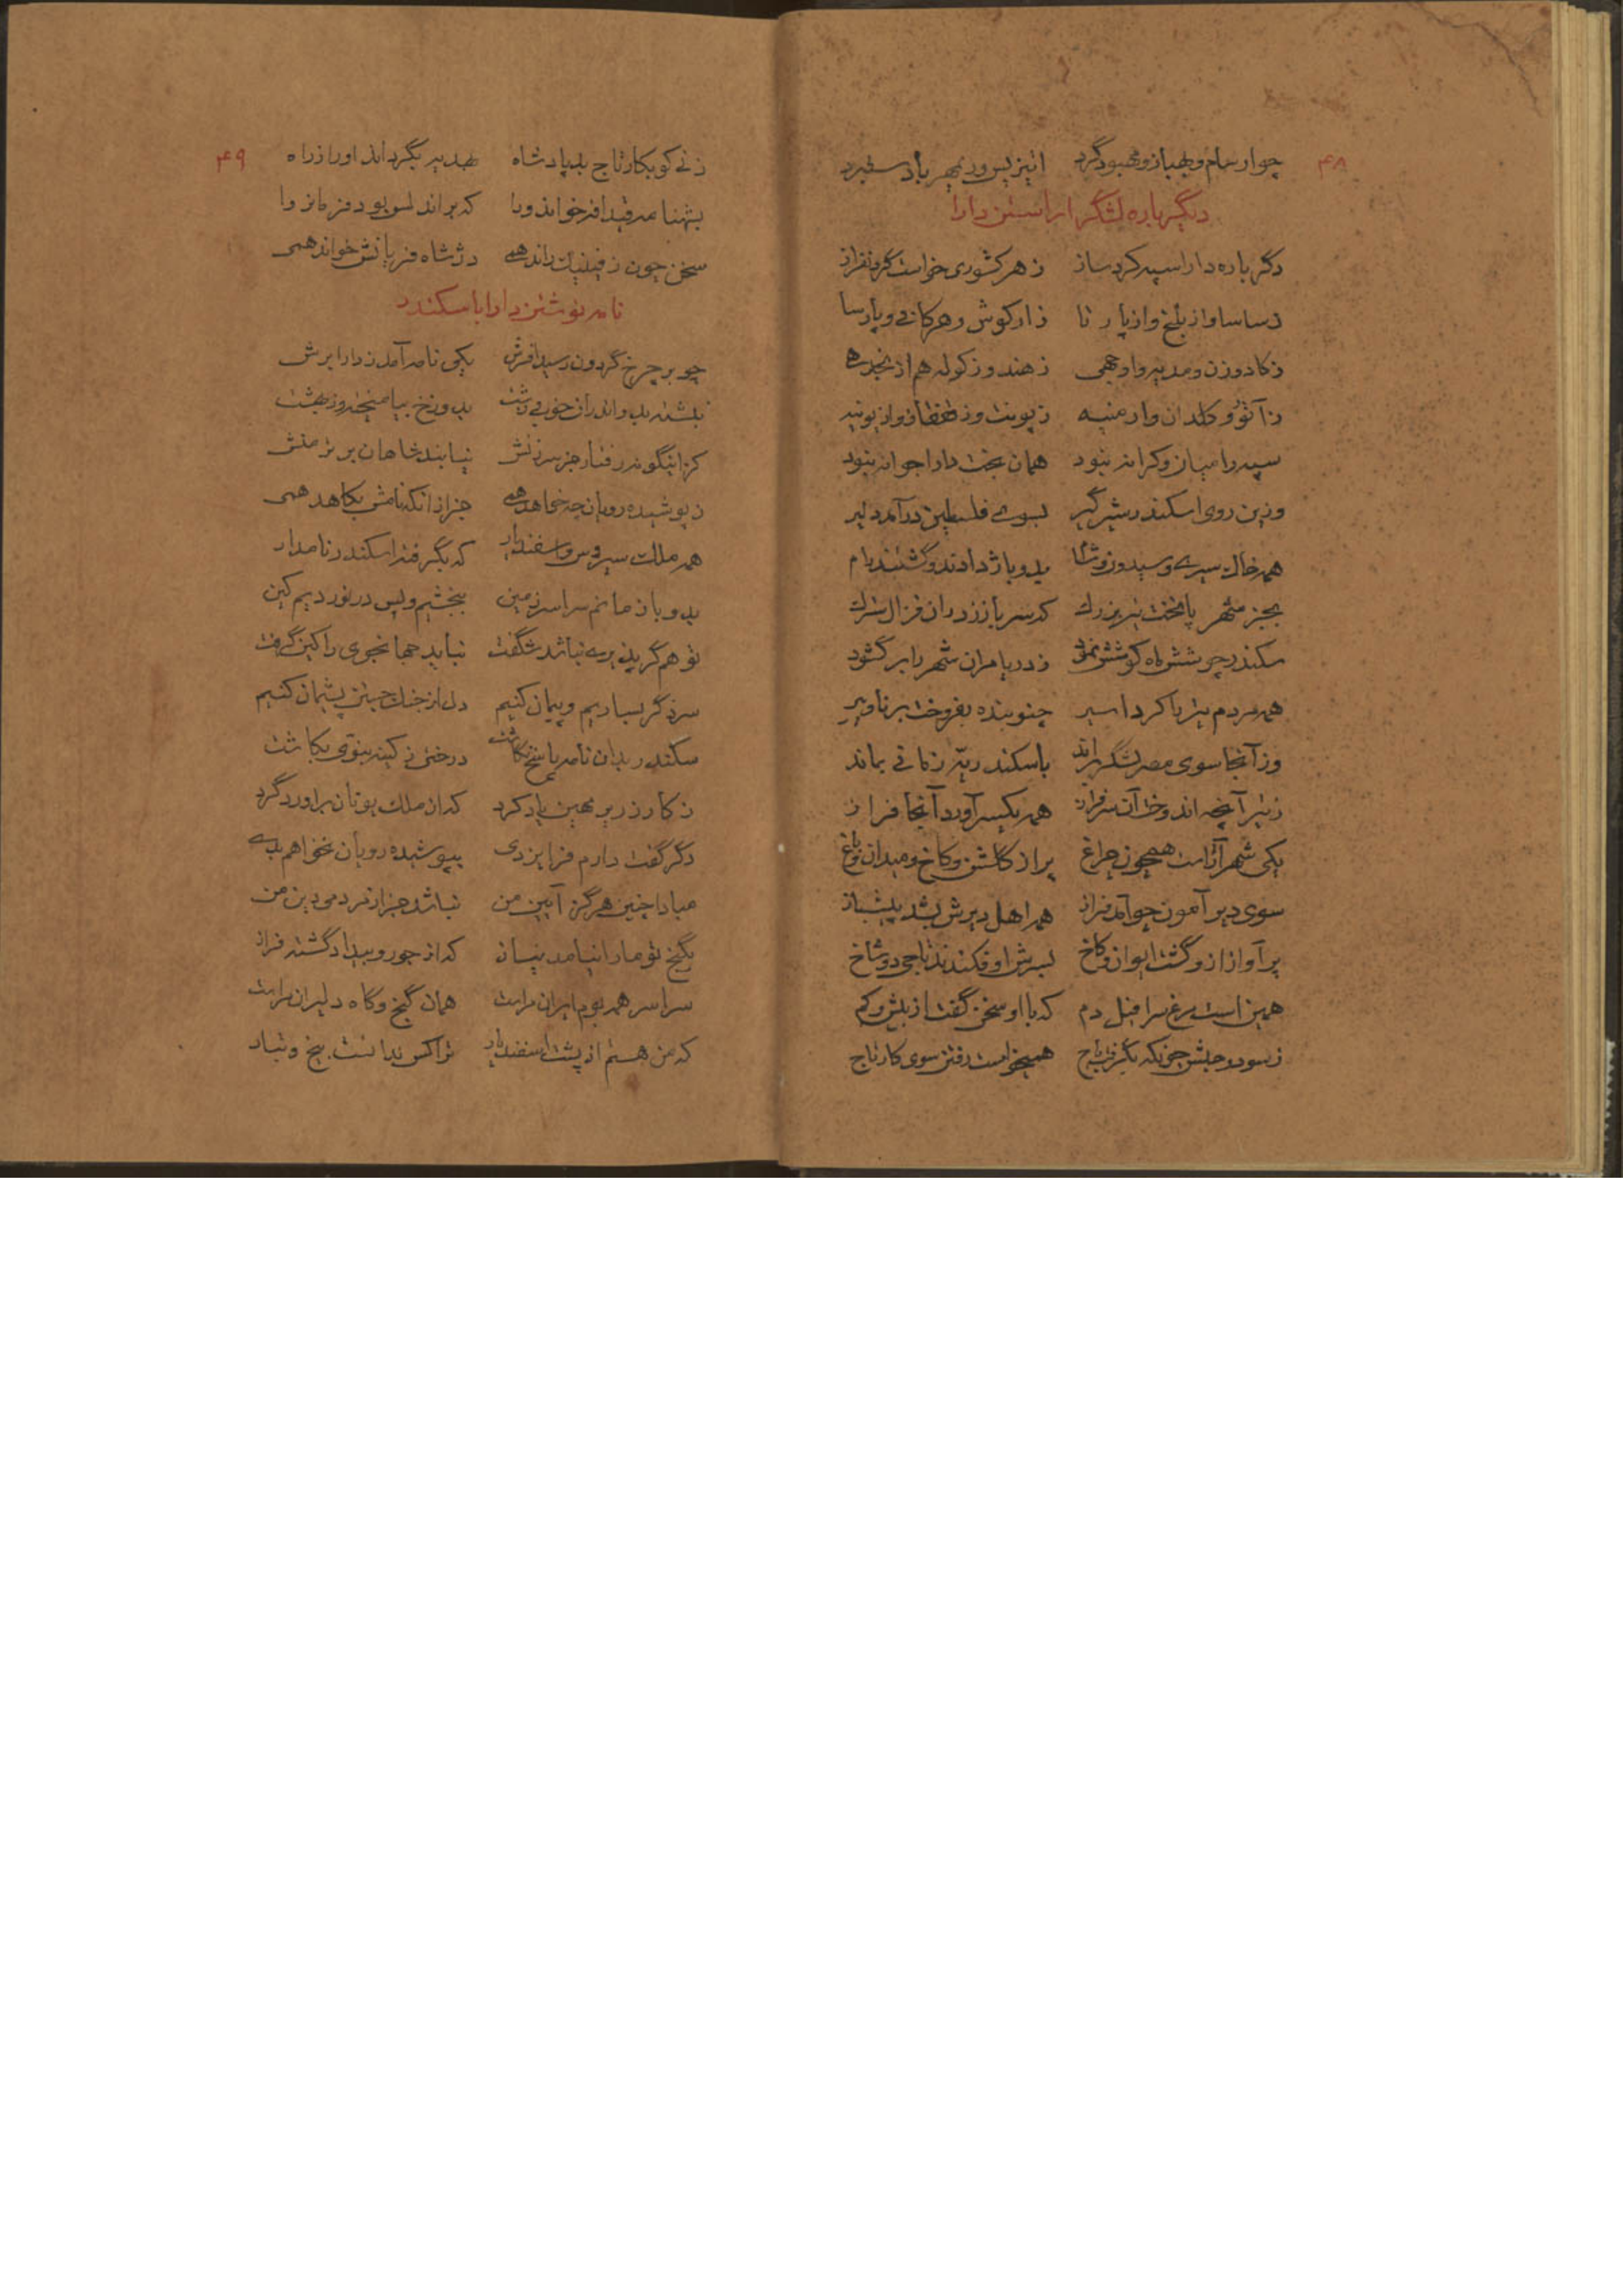 ۴۸
چو ارسام و مهیار و مهبود گرد
دیگر باره لشگر اراستن دارا
دگر باره دارا سپه کرد ساز ز هر کشوری خواست گردنفراز
ز ساسا و از بلخ و از پارتا ز ارکوش و هرکانی و پارسا
ز هند و ز کوله هم از
ز آثور و کلدان و ارمنیه ز پونت و ز قفقاز و از یونیه
سپه را میان و کرانه نبود همان بخت دارا جوانه نبود
وزین روی اسکندر شیرگیر بسوی فلسطین درآمد دلیر
همه خاک سیری و سیدون و شام بدو باژ دادند و گشتند رام
بجز شهر پاتخت تیر بزرگ که سر باز زد زان قزال سترگ
سکندر چو شش ماه کوشش نمود ز دریا مران شهر را بر گشود
همه مردم تیر را کرد اسیر چنو بنده بفروخت برنا و پیر
وز آنجا سوی مصر لشگر براند باسکندریه زمانی بماند
ز تیر آنچه اندوخت آن سرفراز همه یکسر آورد آنجا فراز
یکی شهر آراست همچون چراغ پر از گلشن و کاخ و میدان و باغ
سوی دیر آمون چو آمد فراز همه اهل دیرش بشد پیشباز
پر آواز ازو گشت ایوان و کاخ بسرش او فکندند تاجی دو شاخ
همین است مرغ سرافیل دم که با او سخن گفت از بیش و کم
ز سود و حبش چونکه بگرفت باج همیخواست رفتن سوی کارتاج
۴۹
زنی کو بکارتاج بد پادشاه بتدبیر بگرداند او را ز راه
بشهنامه قیدافه خواند ورا که براندلس بود فرمانروا
سخن چون ز فینیک راند همی دژ شاه فریانش خواند همی
نامه نوشتن دارا با سکندر
چو بر چرخ گردون رسید افرش یکی نامه آمد ز دارا برش
نبشته بد و اندران خوب و زشت بدوزخ بیامیخته وز بهشت
کز اینگونه رفتار جز سرزنش نیابند شاهان برتر منش
ز پوشیده رویان چه خواهد همی جز از آنکه نامش بکاهد همی
همه ملک سیروس و اسفندیار که بگرفته اسکندر نامدار
بدو باز مانم سراسر زمین ببخشیم و پس در نوردیم کین
تو هم گر پذیری نباشد شگفت نباید جهانجوی را کین گرفت
سزد گر بسازیم و پیمان کنیم دل از جنگ جستن پشیمان کنیم
سکندر بدان نامه پاسخ نگاشت درختی ز کینه بنوی بکاشت
ز کار زریر مهین یاد کرد که از ملک یونان براورد گرد
دگر گفت دارم فر ایزدی بپوشیده رویان نخواهم بدی
مبادا چنین هرگز آیین من نباشد جز از مردمی دین من
بگنج تو ما را نیامد نیاز که از جور و بیداد گشته فراز
سراسر همه بوم ایران مراست همان گنج و گاه دلیران مراست
که من هستم از پشت اسفندیار تراکس ندانست بیخ و تبار